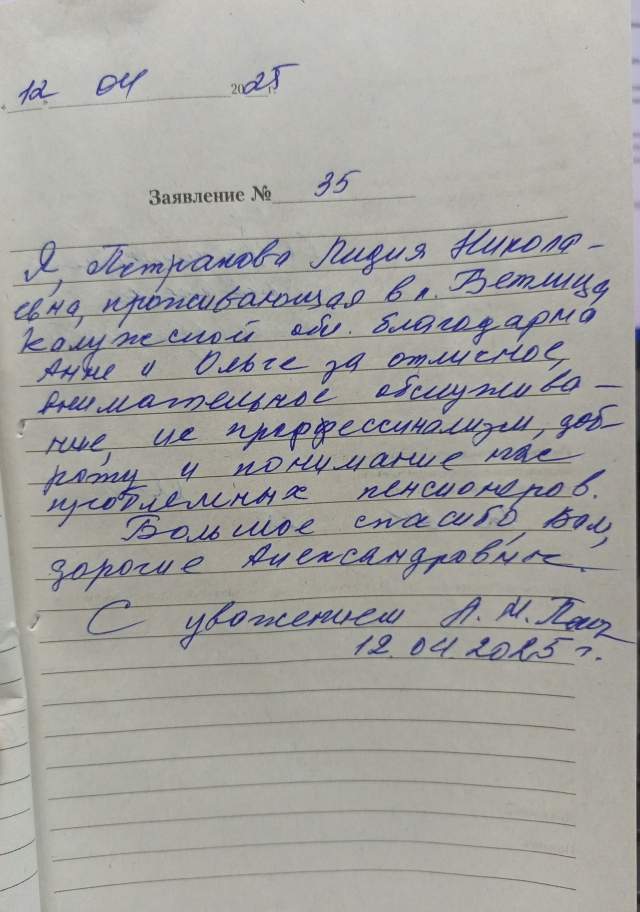 « 12 » 04 2025 г.
Заявление № 35
Я, Петракова Лидия Никола-
евна, проживающая в п. Ветлица
Калужской обл. благодарна
Анне и Ольге за отличное,
внимательное обслужива-
ние, их профессинализм, доб-
роту и понимание нас
проблемных пенсионеров.
Большое спасибо, Вам,
дорогие Александровны.
С уважением
12.04.2025 г.